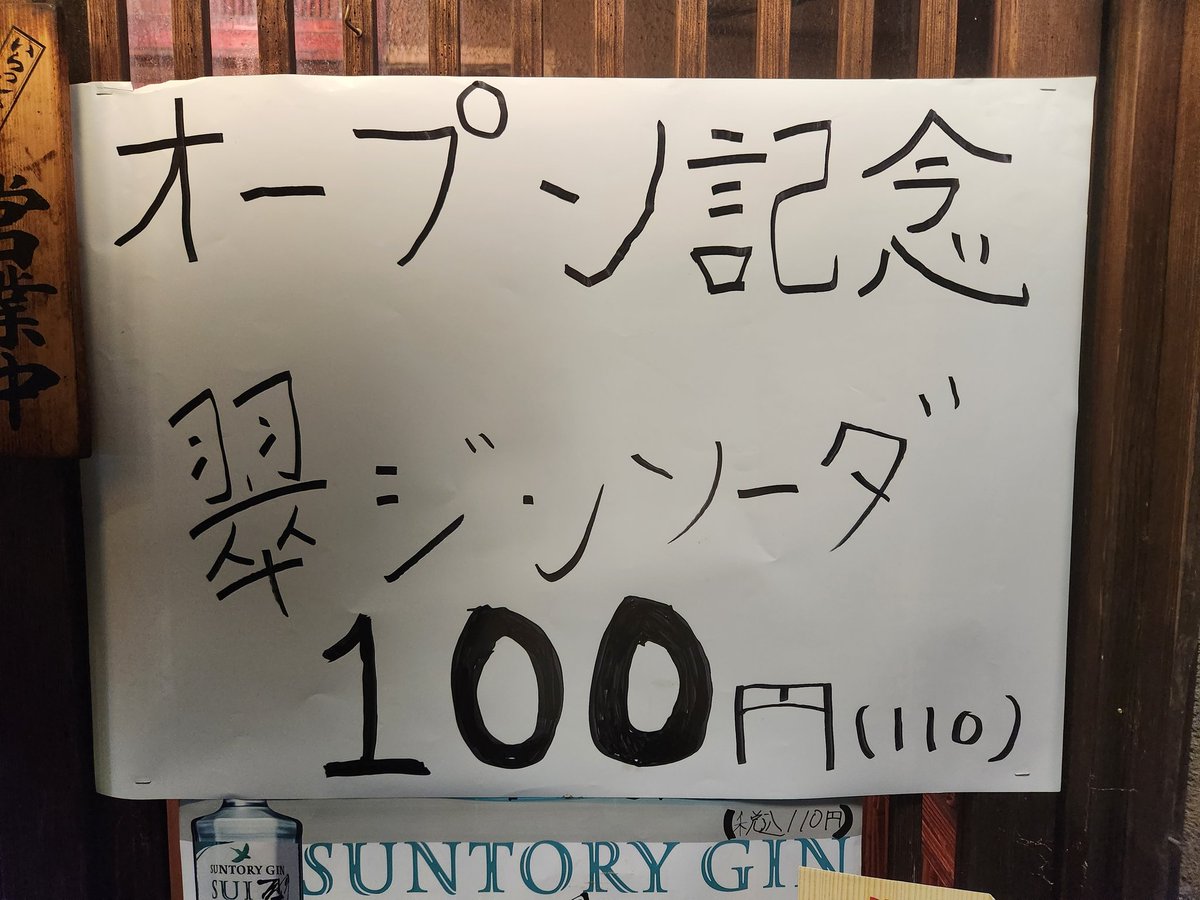 オープン記念
翠ジンソーダ
100円(110)
営業中
(税込110円)
SUNTORY GIN
SUNTORY GIN
SUI